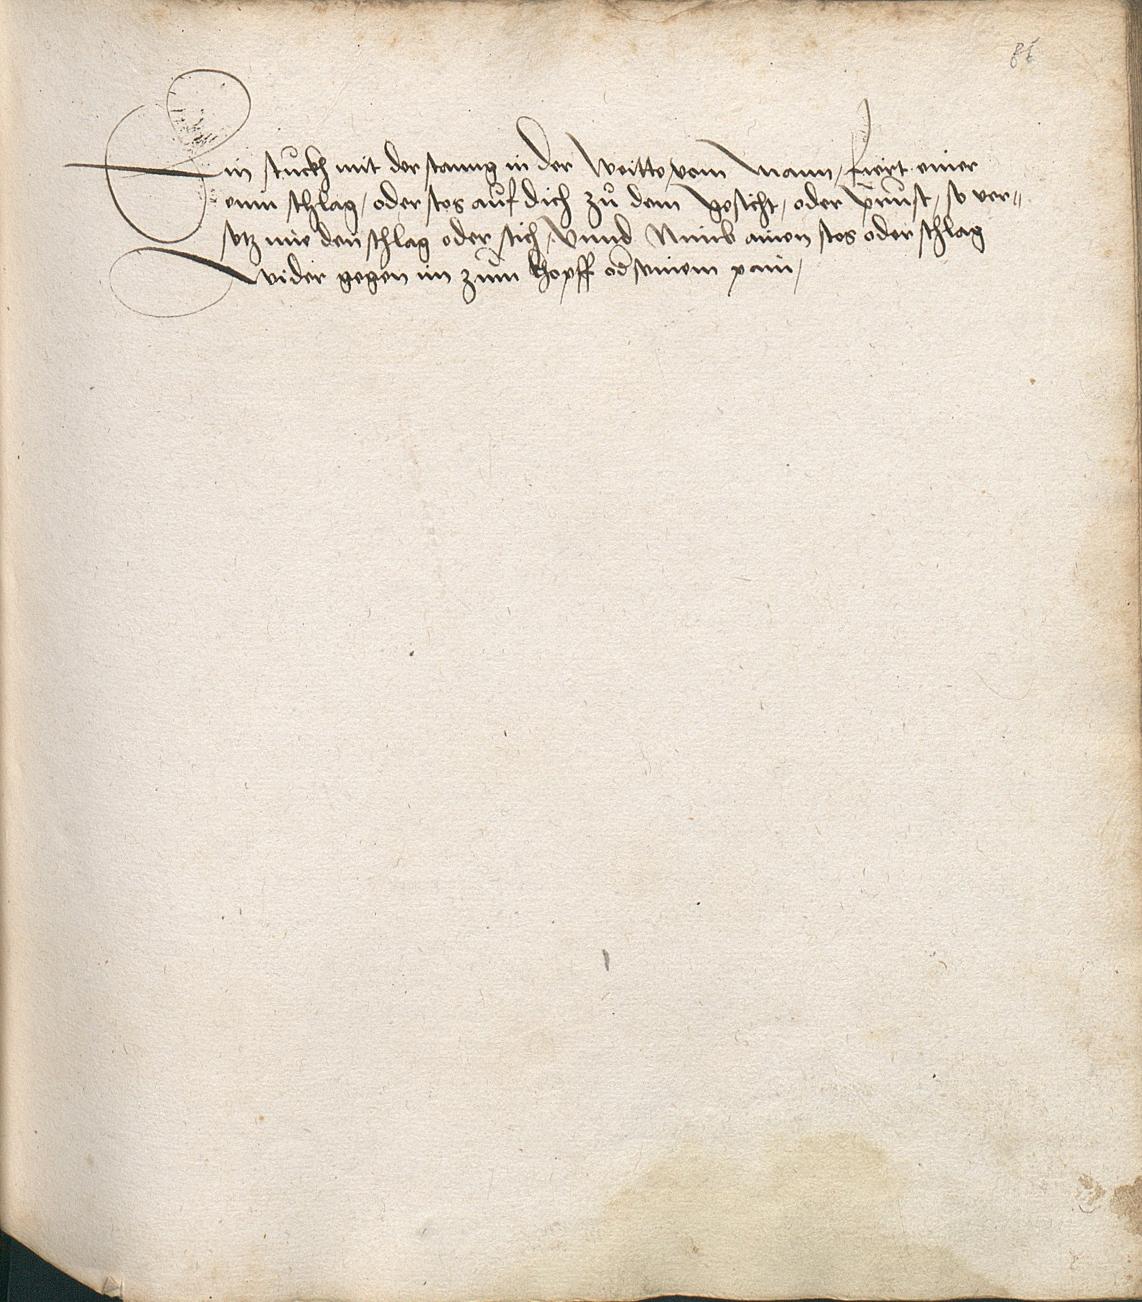 86
Ein stuckh mit der stanng in der Weitte vom Mann, fiert einer
ainn schlag, oder stos auf dich zů dem gesicht, oder prŭst, so ver=
setz mie den schlag oder stich, Vnnd Nimb ainen stos oder schlag
wider gegen im zŭm khopff od seinem pain,